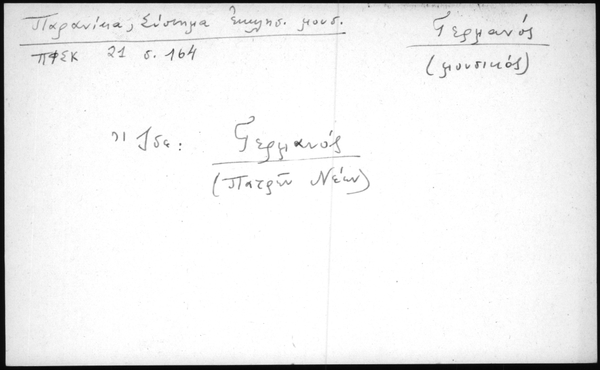 Παρανίκα, Σύστημα Ἐκκλησ. μουσ.
ΠΦΣΚ 21 σ. 164
Γερμανός
(μουσικός)
Ἴδε:
Γερμανός
(Πατρῶν Νέων)